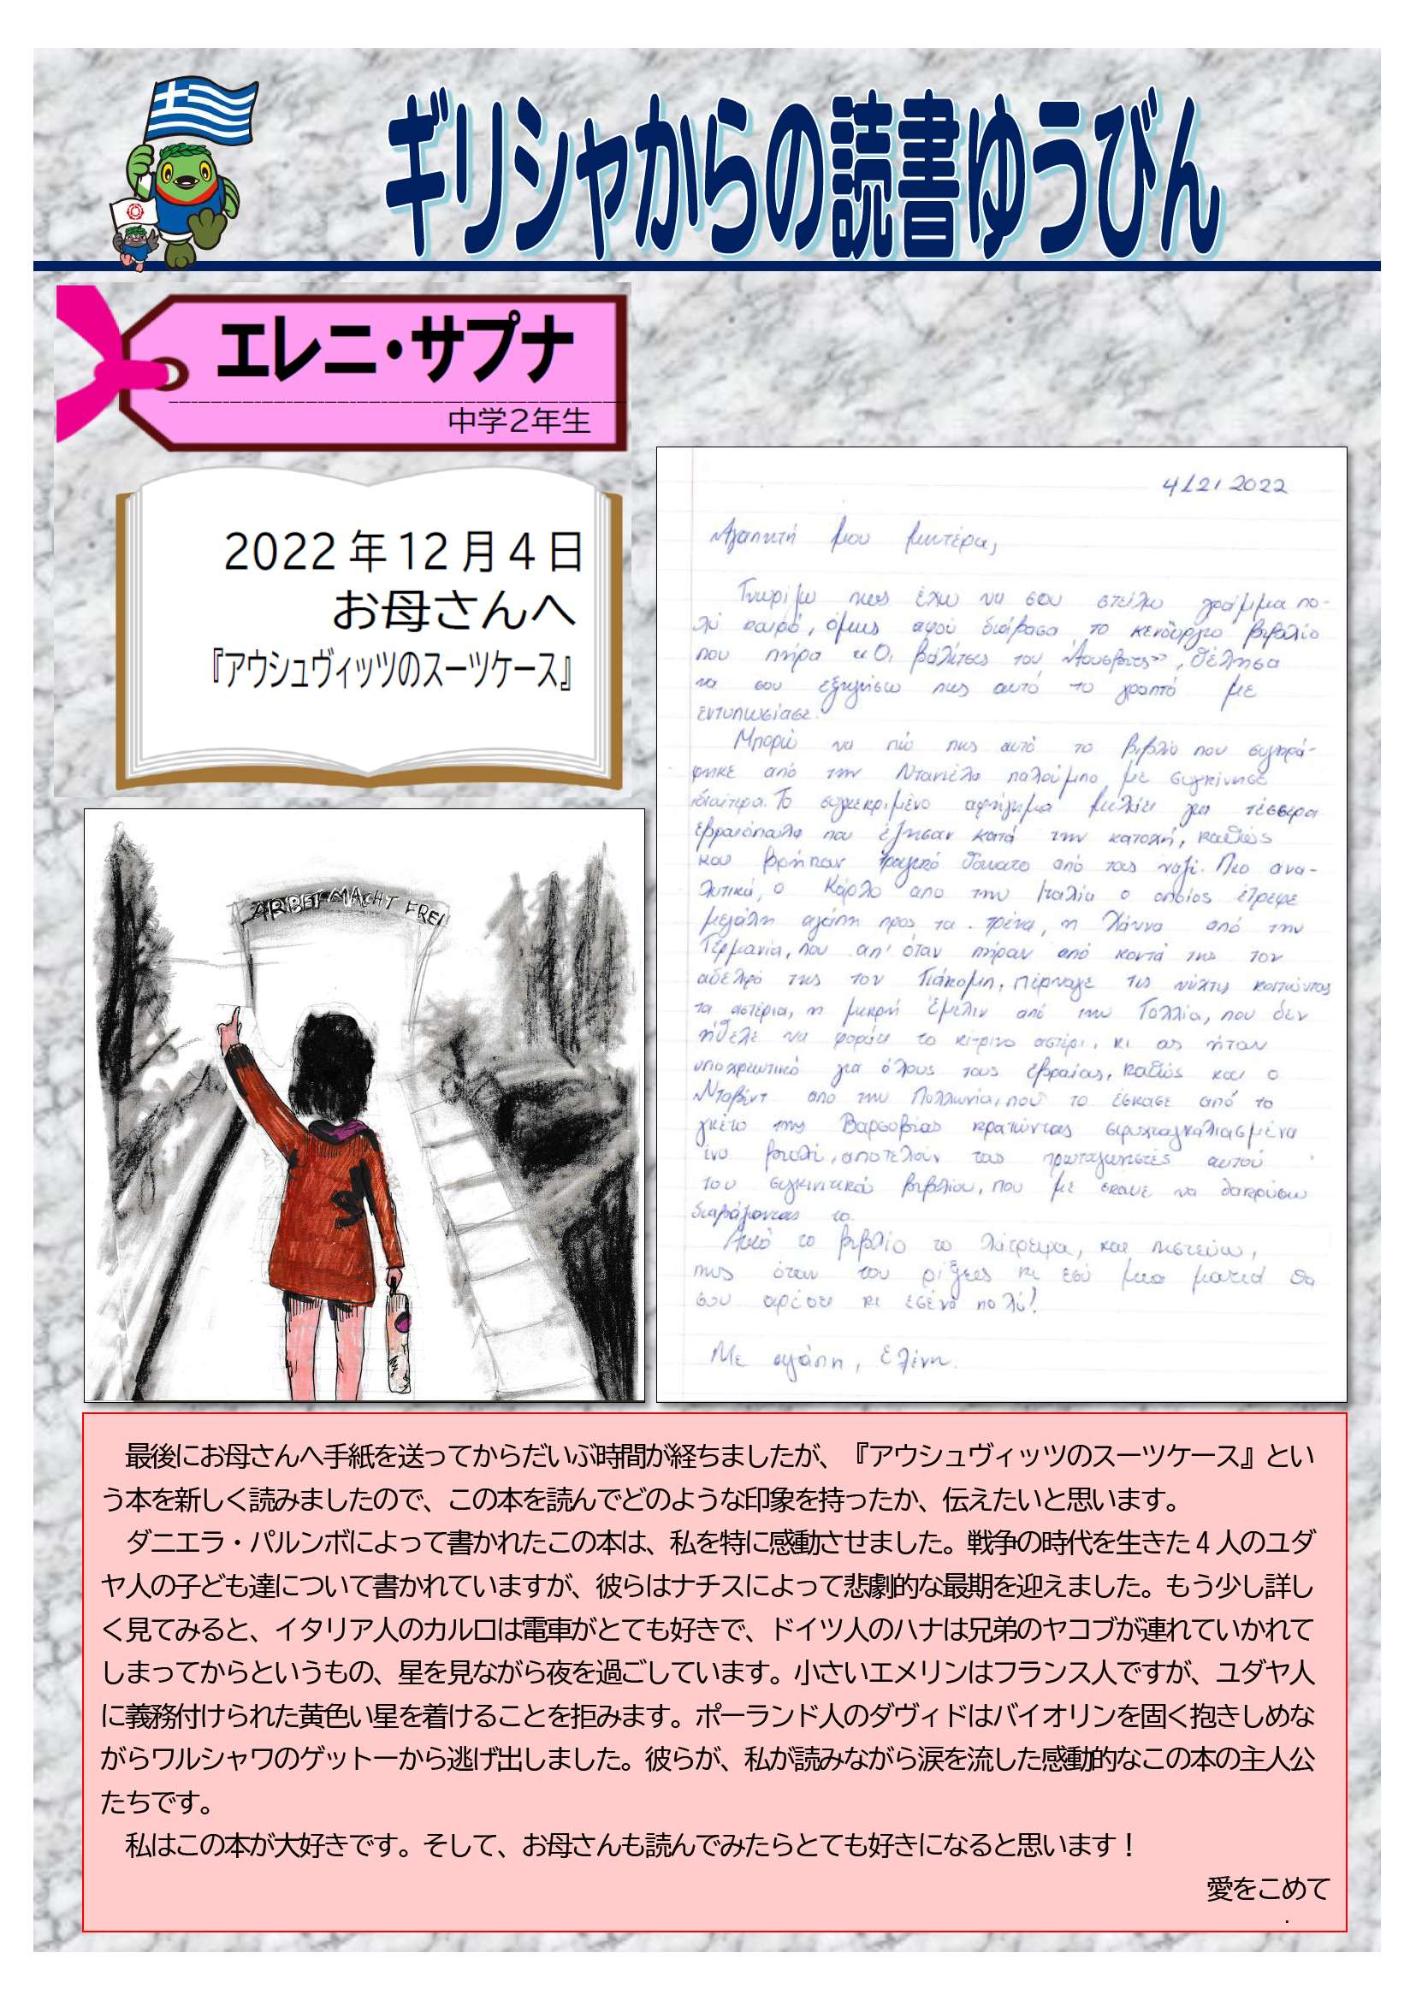 ギリシャからの読書ゆうびん
エレニ・サプナ
中学2年生
2022年12月4日
お母さんへ
『アウシュヴィッツのスーツケース』
4/12/2022
Αγαπητή μου μητέρα,
Γνωρίζω πως έχω να σου στείλω γράμμα πο-
λύ καιρό, όμως αφού διάβασα το καινούργιο βιβλίο
που πήρα «Οι βαλίτσες του Άουσβιτς», θέλησα
να σου εξηγήσω πως αυτό το γραπτό με
εντυπωσίασε.
Μπορώ να πώ πως αυτό το βιβλίο που συγγρά-
φηκε από την Ντανιέλα Παλούμπο με συγκίνησε
ιδιαίτερα. Το συγκεκριμένο αφήγημα μιλάει για τέσσερα
εβραιόπουλα που έζησαν κατά την κατοχή, καθώς
και βρήκαν τραγικό θάνατο από τους ναζί. Πιο ανα-
λυτικά, ο Κάρλο απο την Ιταλία ο οποίος έτρεφε
μεγάλη αγάπη προς τα τρένα, η Χάννα από την
Γερμανία, που απ' όταν πήραν από κοντά της τον
αδελφό της τον Γιάκομπ, πέρναγε τις νύχτες κοιτώντας
τα αστέρια, η μικρή Έμελιν από την Γαλλία, που δεν
ήθελε να φοράει το κίτρινο αστέρι, κι ας ήταν
υποχρεωτικό για όλους τους εβραίους, καθώς και ο
Νταβίντ από την Πολλωνία, που το έσκασε από το
γκέτο της Βαρσοβίας κρατώντας σφιχταγκαλιασμένα
ένα βιολί, αποτελούν τους πρωταγωνιστές αυτού
του συγκινητικού βιβλίου, που με έκανε να δακρύσω
διαβάζοντας το.
Αυτό το βιβλίο το λάτρεψα, και πιστεύω,
πως όταν του ρίξεις κι εσύ μια ματιά θα
σου αρέσει κι εσένα πολύ!
Με αγάπη, Ελένη.
ARBEIT MACHT FREI
最後にお母さんへ手紙を送ってからだいぶ時間が経ちましたが、『アウシュヴィッツのスーツケース』とい
う本を新しく読みましたので、この本を読んでどのような印象を持ったか、伝えたいと思います。
ダニエラ・パルンボによって書かれたこの本は、私を特に感動させました。戦争の時代を生きた4人のユダ
ヤ人の子ども達について書かれていますが、彼らはナチスによって悲劇的な最期を迎えました。もう少し詳し
く見てみると、イタリア人のカルロは電車がとても好きで、ドイツ人のハナは兄弟のヤコブが連れていかれて
しまってからというもの、星を見ながら夜を過ごしています。小さいエメリンはフランス人ですが、ユダヤ人
に義務付けられた黄色い星を着けることを拒みます。ポーランド人のダヴィドはバイオリンを固く抱きしめな
がらワルシャワのゲットーから逃げ出しました。彼らが、私が読みながら涙を流した感動的なこの本の主人公
たちです。
私はこの本が大好きです。そして、お母さんも読んでみたらとても好きになると思います！
愛をこめて
.